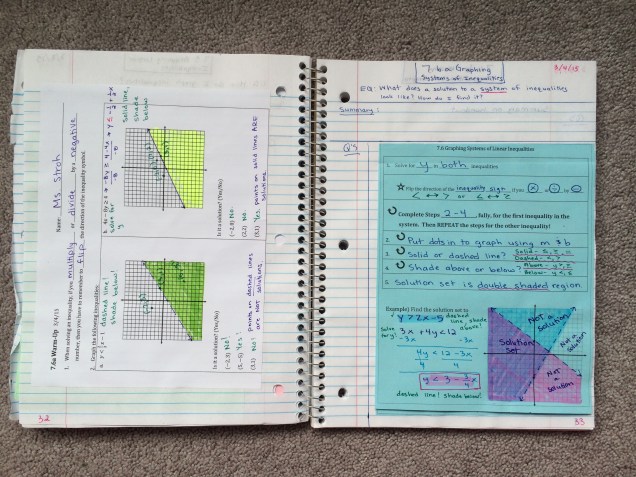 Name: Ms Stroh
7.6a Warm-Up 3/4/15
1. When solving an inequality, if you multiply or divide by a negative
number, then you have to remember to flip the direction of the inequality symbol.
2. Graph the following inequalities:
dashed line!
shade below!
solve for
y
solid line,
shade
below!
Is it a solution? (Yes/No)
Is it a solution? (Yes/No)
(-2,3) No!
(3,1) No!
points on dashed lines
are NOT solutions
(-2,3) No!
(3,1) Yes
points on solid lines ARE
solutions
32
7.6a Graphing
Systems of Inequalities
3/4/15
EQ: What does a solution to a system of inequalities
look like? How do I find it?
Summary:
Q's
7.6 Graphing Systems of Linear Inequalities
1. Solve for y in both inequalities
Flip the direction of the inequality sign if you
< ↔ > or ≤ ↔ ≥
Complete Steps 2-4 fully, for the first inequality in the
system. Then REPEAT the steps for the other inequality!
2. Put dots in to graph using m & b
3. Solid or dashed line? Solid - ≤, ≥, =
Dashed - <, >
4. Shade above or below? Above - y >, ≥
Below - y <, ≤
5. Solution set is double shaded region
Example) Find the solution set to
y > 2x - 5
dashed line, shade above!
Solve for y:
3x + 4y < 12
-3x -3x
4y < 12 - 3x
4 4
y < 3 - 3/4 x
dashed line! shade below!
Solution
set
NOT
Solution
Not a
solution
Not a
solution
33